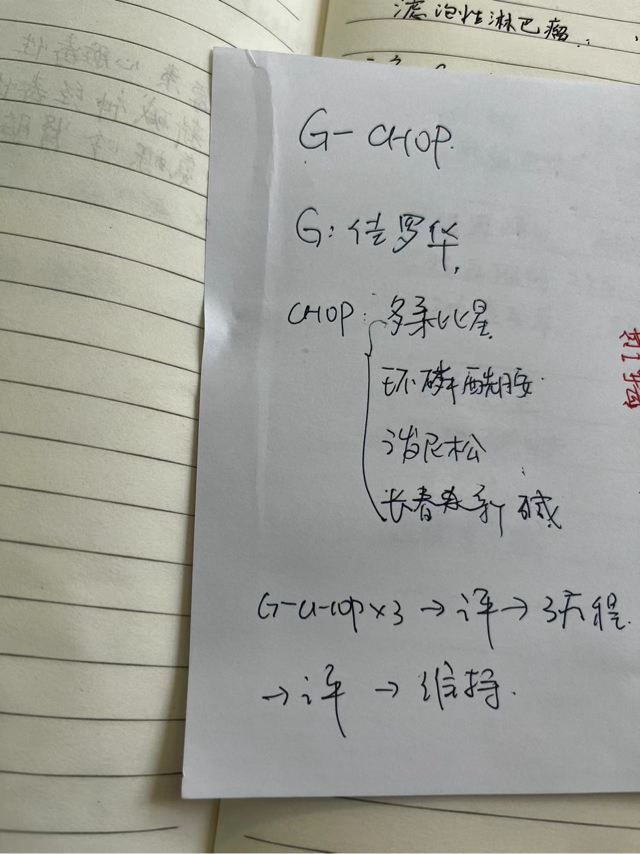 滤泡性淋巴瘤.
G-CHOP.
G:佳罗华,
CHOP:多柔比星
环磷酰胺
泼尼松
长春新碱
G-CHOP×3→评→3疗程
→评→维持.